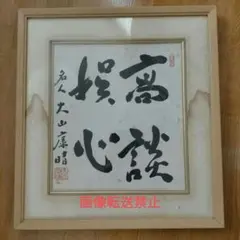 高談
娯心
名人 大山康晴
画像転送禁止